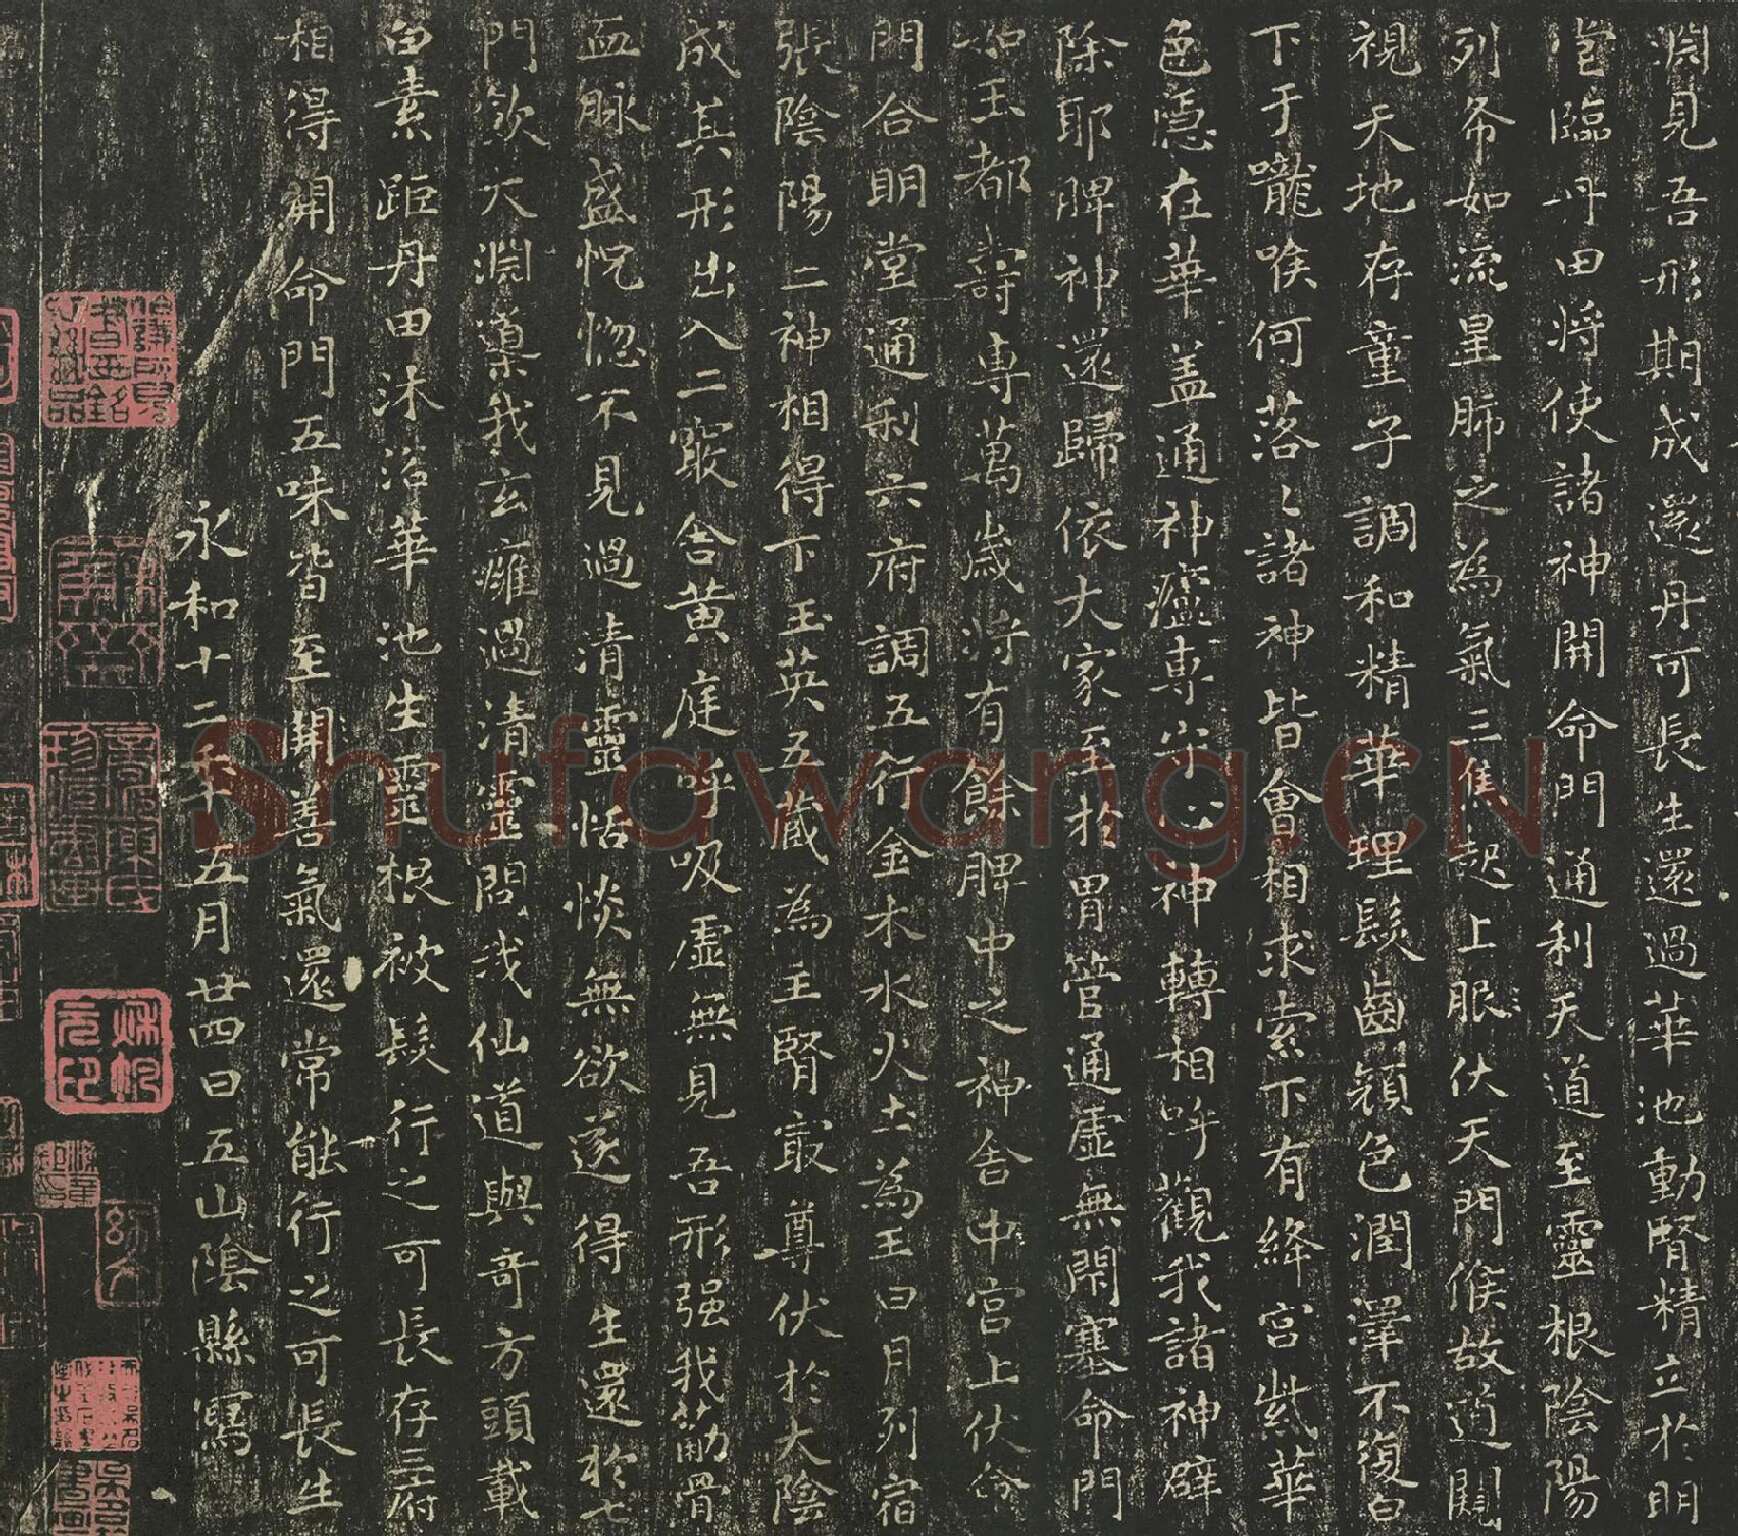 淵見吾形期成還丹可長生還過華池動腎精立於明
堂臨丹田將使諸神開命門通利天道至靈根陰陽
列布如流星肺之為氣三焦起上服伏天門候故道闚
視天地存童子調和精華理髮齒顏色潤澤不復白
下于嚨喉何落〻諸神皆會相求索下有絳宮紫華
色隱在華盖通神廬專守心神轉相呼觀我諸神辟
除耶脾神還歸依大家至於胃管通虛無閉塞命門
如玉都壽專萬歲將有餘脾中之神舍中宮上伏命
門合明堂通利六府調五行金木水火土為王日月列宿
張陰陽二神相得下玉英五藏為主腎最尊伏於大陰
成其形出入二竅舍黃庭呼吸虛無見吾形强我筋骨
血脉盛怳惚不見過清靈恬惔無欲遂得生還於七
門飲大淵導我玄癰過清靈問我仙道與奇方頭載
白素距丹田沐浴華池生靈根被髮行之可長存三府
相得開命門五味皆至開善氣還常能行之可長生
永和十二年五月廿四日五山陰縣寫
Shufawang.CN